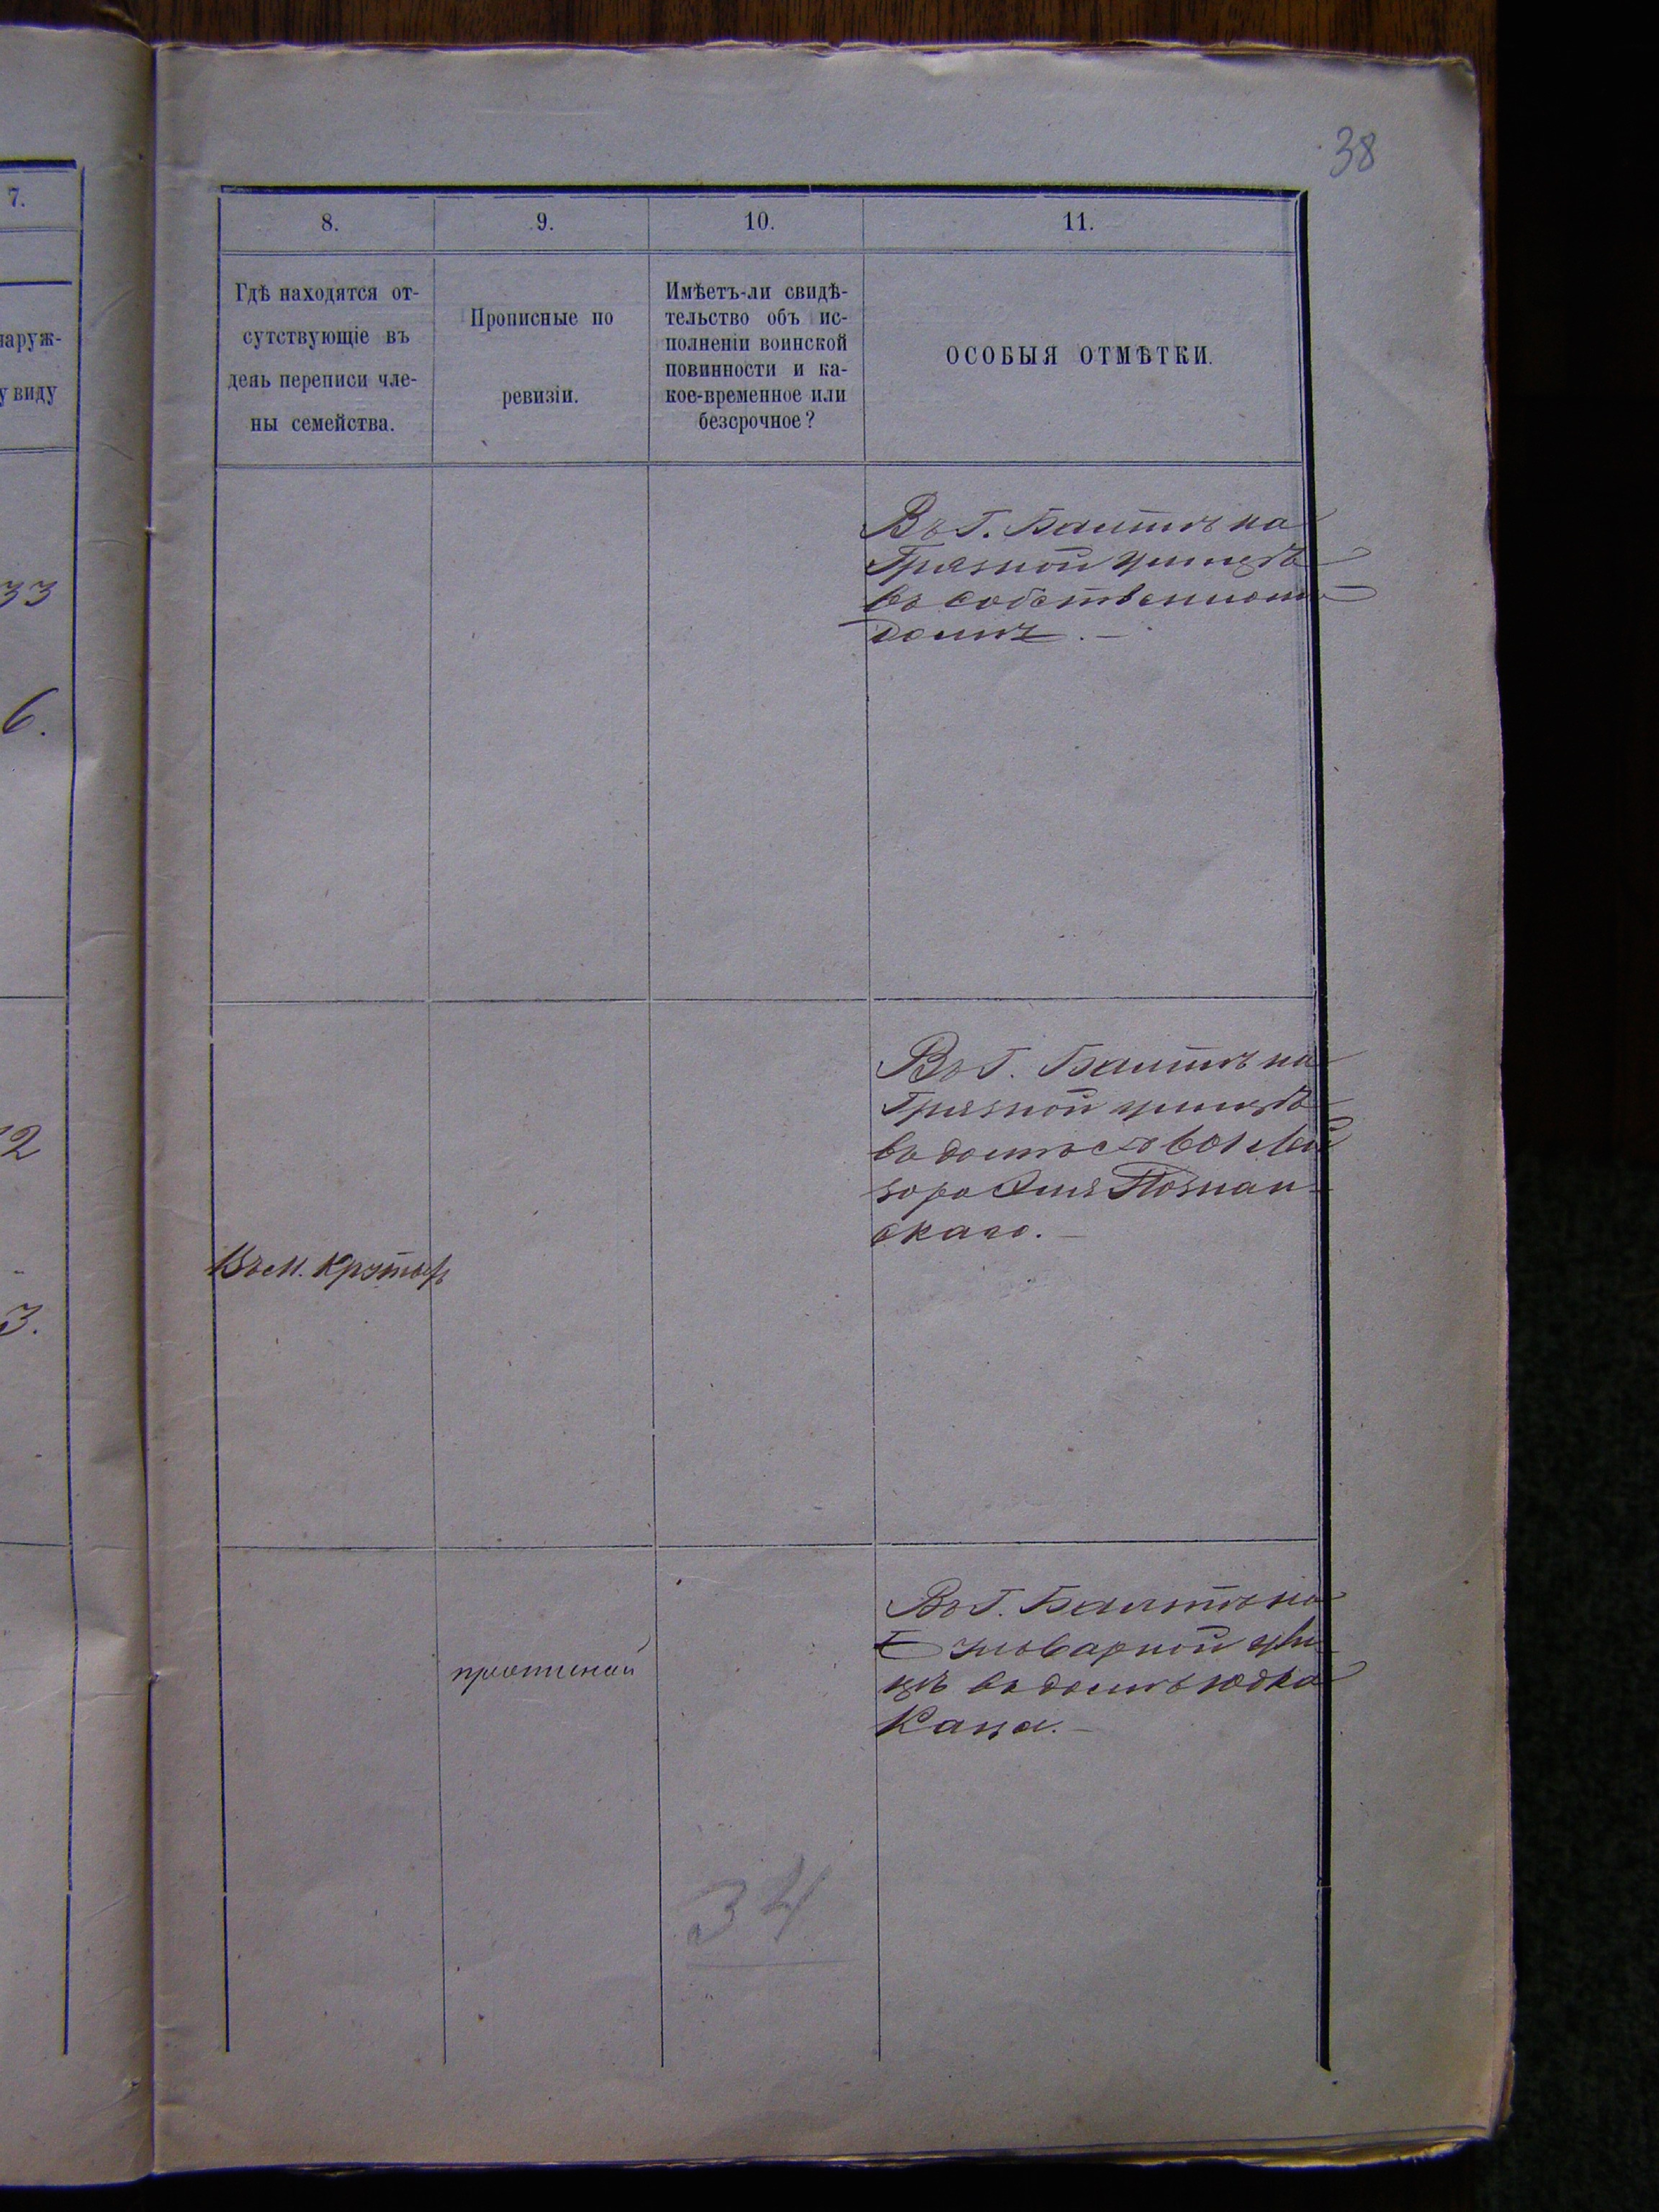 38
7.
8.
9.
10.
11.
наруж-
у виду
Гдѣ находятся от-
сутствующіе въ
день переписи чле-
ны семейства.
Прописные по
ревизіи.
Имѣетъ-ли свидѣ-
тельство объ ис-
полненіи воинской
повинности и ка-
кое-временное или
безсрочное?
ОСОБЫЯ ОТМѢТКИ.
33
6.
Въ Г. Балтѣ на
Грязной улицѣ
въ собственномъ
домѣ. —
2
3.
Въ м. Крутыхъ
Въ Г. Балтѣ на
Грязной улицѣ
въ домѣ
Познан-
скаго. —
прописной
Въ Г. Балтѣ на
улы-
цѣ въ домѣ Юдка
Каца. —
34